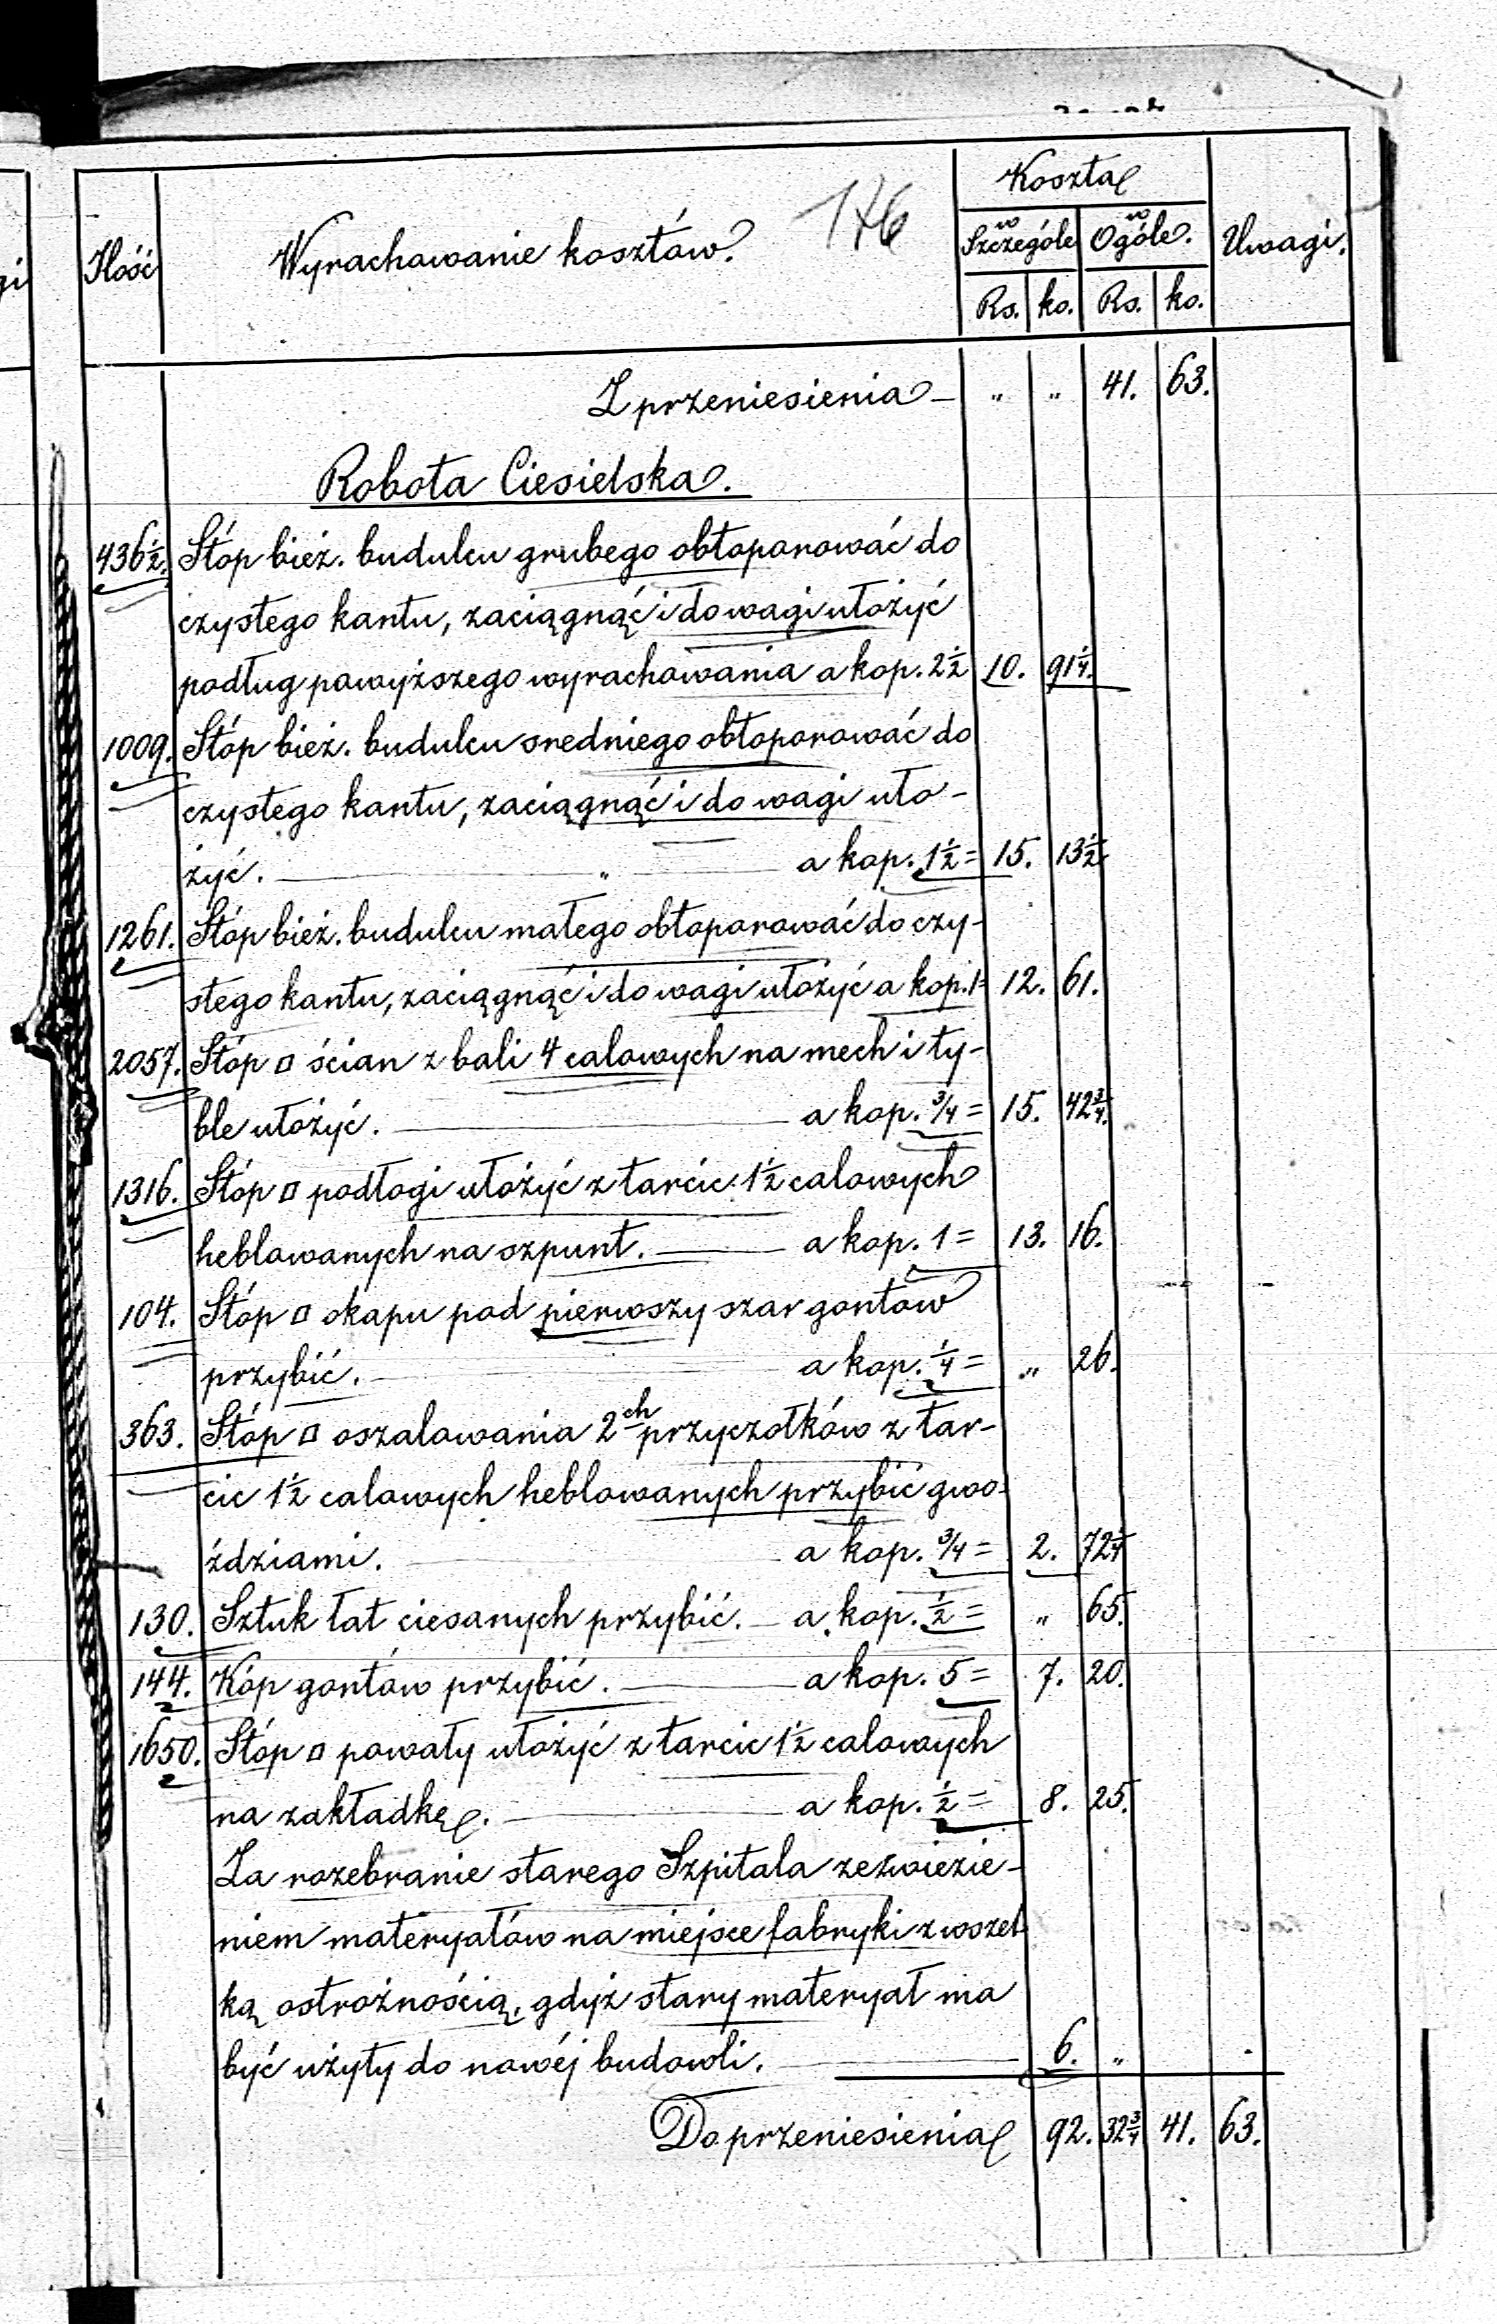 176
Ilość Wyrachowanie kosztów. Koszta Uwagi.
w Szczególe w Ogóle.
Rs. ko. Rs. ko.
Z przeniesienia — „ „ 41. 63.
Robota Ciesielska.
436½. Stóp bież. budulcu grubego obtoporować do
czystego kantu, zaciągnąć i do wagi ułożyć
podług powyższego wyrachowania a kop. 2½ 10. 91¼.
1009. Stóp bież. budulcu sredniego obtoporować do
czystego kantu, zaciągnąć i do wagi uło-
żyć. — „ — a kop. 1½ = 15. 13½.
1261. Stóp bież. budulcu małego obtoporować do czy-
stego kantu, zaciągnąć i do wagi ułożyć a kop. 1= 12. 61.
2057. Stóp □ ścian z bali 4 calowych na mech i ty-
ble ułożyć. — a kop. ¾ = 15. 42¾.
1316. Stóp □ podłogi ułożyć z tarcic 1½ calowych
heblowanych na szpunt. — a kop. 1 = 13. 16.
104. Stóp □ okapu pod pierwszy szar gontów
przybić. — a kop. ¼ = „ 26.
363. Stóp □ oszalowania 2ch przyczołków z tar-
cic 1½ calowych heblowanych przybić gwo-
ździami. — a kop. ¾ = 2. 72¼
130. Sztuk łat ciesanych przybić. — a kop. ½ = „ 65.
144. Kóp gontów przybić. — a kop. 5 = 7. 20.
1650. Stóp □ powały ułożyć z tarcic 1½ calowych
na zakładkę. — a kop. ½ = 8. 25.
Za rozebranie starego Szpitala ze zwiezie-
niem materyałów na miejsce fabryki z wszel-
ką ostrożnością, gdyż stary materyał ma
być użyty do nowéj budowli. — 6. „
Do przeniesienia 92. 32¾ 41. 63.